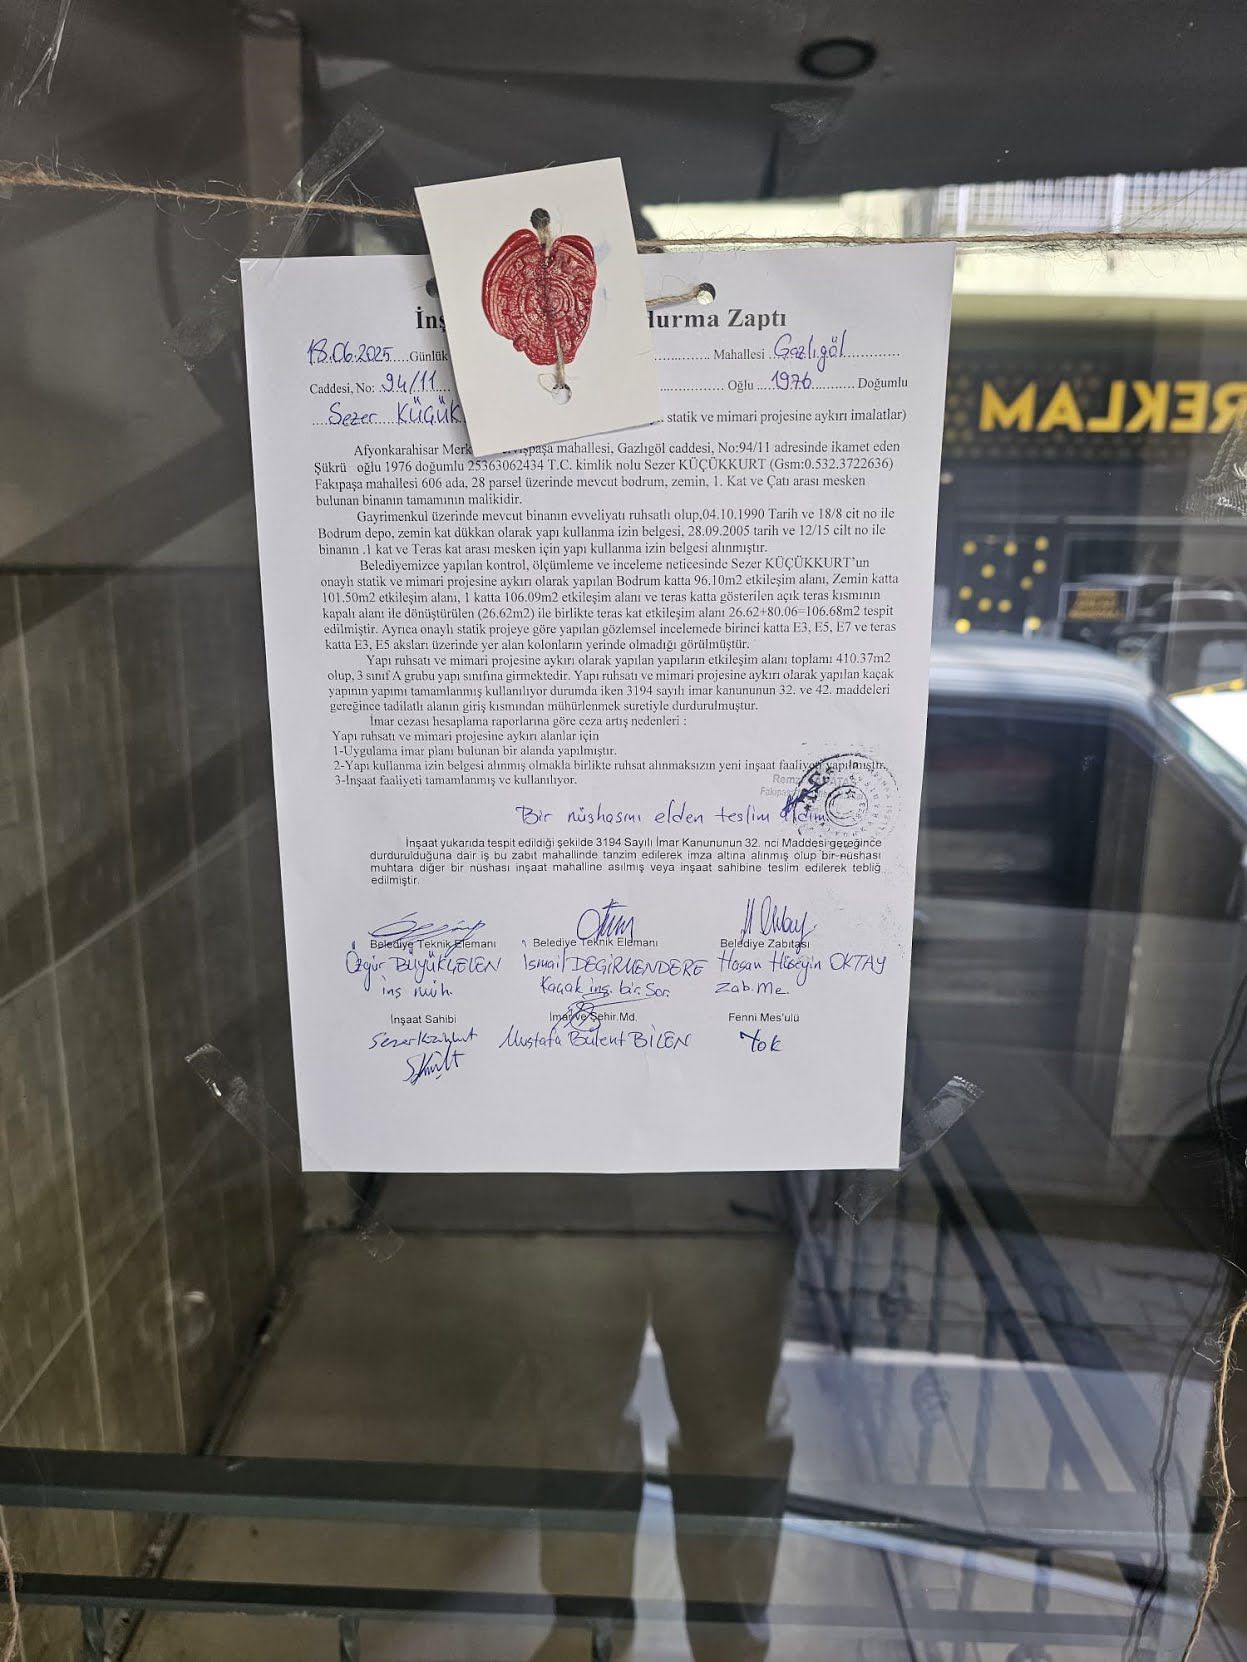 durma Zaptı
18.06.2025 Günlük Mahallesi Gazlıgöl
Caddesi, No: 94/11 Oğlu 1976 Doğumlu
Sezer statik ve mimari projesine aykırı imalatlar)
Afyonkarahisar mahallesi, Gazlıgöl caddesi, No:94/11 adresinde ikamet eden
Şükrü oğlu 1976 doğumlu 25363062434 T.C. kimlik nolu Sezer KÜÇÜKKURT (Gsm:0.532.3722636)
Fakıpaşa mahallesi 606 ada, 28 parsel üzerinde mevcut bodrum, zemin, 1. Kat ve Çatı arası mesken
bulunan binanın tamamının malikidir.
Gayrimenkul üzerinde mevcut binanın evveliyatı ruhsatlı olup,04.10.1990 Tarih ve 18/8 cit no ile
Bodrum depo, zemin kat dükkan olarak yapı kullanma izin belgesi, 28.09.2005 tarih ve 12/15 cilt no ile
binanın .1 kat ve Teras kat arası mesken için yapı kullanma izin belgesi alınmıştır.
Belediyemizce yapılan kontrol, ölçümleme ve inceleme neticesinde Sezer KÜÇÜKKURT'un
onaylı statik ve mimari projesine aykırı olarak yapılan Bodrum katta 96.10m2 etkileşim alanı, Zemin katta
101.50m2 etkileşim alanı, 1 katta 106.09m2 etkileşim alanı ve teras katta gösterilen açık teras kısmının
kapalı alanı ile dönüştürülen (26.62m2) ile birlikte teras kat etkileşim alanı 26.62+80.06=106.68m2 tespit
edilmiştir. Ayrıca onaylı statik projeye göre yapılan gözlemsel incelemede birinci katta E3, E5, E7 ve teras
katta E3, E5 aksları üzerinde yer alan kolonların yerinde olmadığı görülmüştür.
Yapı ruhsatı ve mimari projesine aykırı olarak yapılan yapıların etkileşim alanı toplamı 410.37m2
olup, 3 sınıf A grubu yapı sınıfına girmektedir. Yapı ruhsatı ve mimari projesine aykırı olarak yapılan kaçak
yapının yapımı tamamlanmış kullanılıyor durumda iken 3194 sayılı imar kanununun 32. ve 42. maddeleri
gereğince tadilatlı alanın giriş kısmından mühürlenmek suretiyle durdurulmuştur.
İmar cezası hesaplama raporlarına göre ceza artış nedenleri :
Yapı ruhsatı ve mimari projesine aykırı alanlar için
1-Uygulama imar planı bulunan bir alanda yapılmıştır.
2-Yapı kullanma izin belgesi alınmış olmakla birlikte ruhsat alınmaksızın yeni inşaat faaliyeti yapılmıştır.
3-İnşaat faaliyeti tamamlanmış ve kullanılıyor.
Bir nüshasını elden teslim aldım
İnşaat yukarıda tespit edildiği şekilde 3194 Sayılı İmar Kanununun 32. nci Maddesi gereğince
durdurulduğuna dair iş bu zabıt mahallinde tanzim edilerek imza altına alınmış olup bir nüshası
muhtara diğer bir nüshası inşaat mahalline asılmış veya inşaat sahibine teslim edilerek tebliğ
edilmiştir.
Belediye Teknik Elemanı Belediye Teknik Elemanı Belediye Zabıtası
Özgür BÜYÜKÇELEN İsmail DEĞİRMENDERE Hasan Hüseyin OKTAY
inş müh. Kaçak inş. bir. Sor. Zab. Me.
İnşaat Sahibi İmar ve Şehir.Md. Fenni Mes'ulü
Sezer Küçükkurt Mustafa Bülent BİLEN Yok
REKLAM